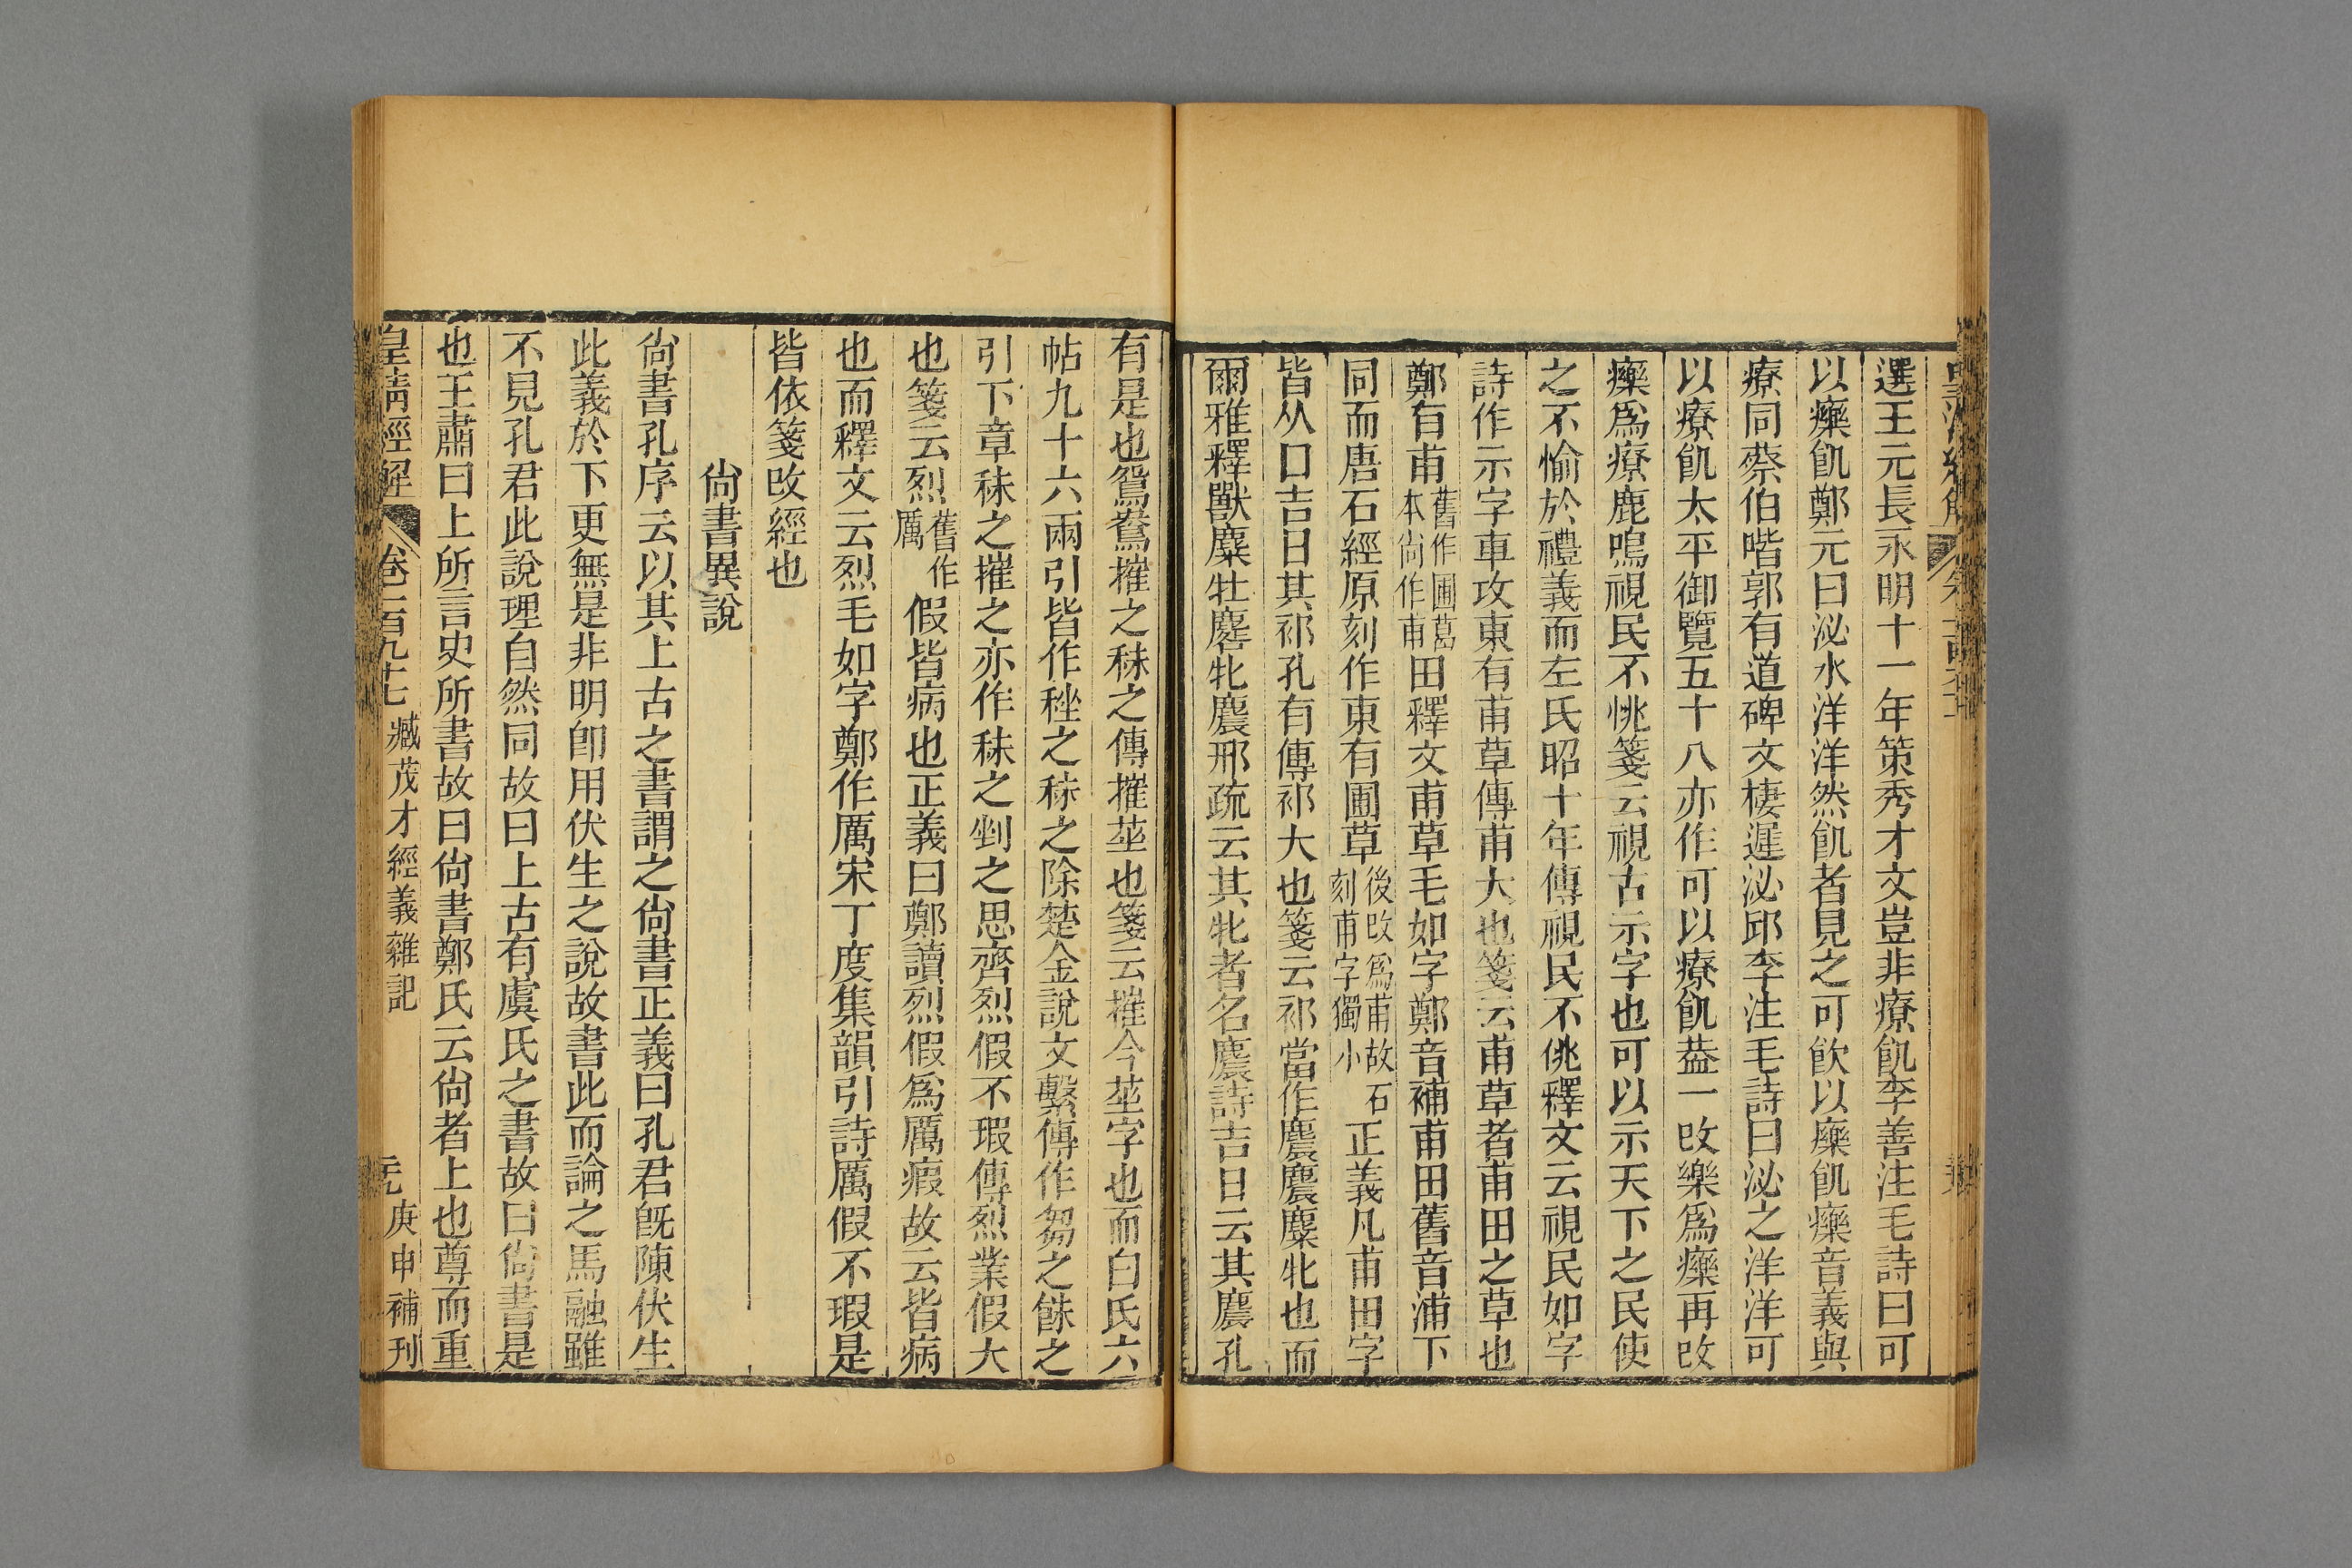 選王元長永明十一年策秀才文豈非療飢李善注毛詩曰可
以藥飢鄭元曰泌水洋洋然飢者見之可飮以𤻲飢𤻲音義與
療同蔡伯喈郭有道碑文棲遲泌邱李注毛詩曰泌之洋洋可
以療飢太平御覽五十八亦作可以療飢葢一改樂爲𤻲再改
𤻲爲療鹿鳴視民不恌箋云視古示字也可以示天下之民使
之不愉於禮義而左氏昭十年傳視民不佻釋文云視民如字
詩作示字車攻東有甫草傳甫大也箋云甫草者甫田之草也
鄭有甫舊作圃葛本尙作甫田釋文甫草毛如字鄭音補甫田舊音浦下
同而唐石經原刻作東有圃草後改爲甫故石刻甫字獨小正義凡甫田字
皆从口吉日其祁孔有傳祁大也箋云祁當作麎麎麋牝也而
爾雅釋獸麋牡麔牝麎邢疏云其牝者名麎詩吉日云其麎孔
有是也鴛鴦摧之秣之傳摧莝也箋云摧今莝字也而白氏六
帖九十六兩引皆作挫之秣之除楚金說文繫傳作芻之餗之
引下章秣之摧之亦作秣之剉之思齊烈假不瑕傳烈業假大
也箋云烈舊作厲假皆病也正義曰鄭讀烈假爲厲瘕故云皆病
也而釋文云烈毛如字鄭作厲宋丁度集韻引詩厲假不瑕是
皆依箋改經也
尙書異說
尙書孔序云以其上古之書謂之尙書正義曰孔君旣陳伏生
此義於下更無是非明卽用伏生之說故書此而論之馬融雖
不見孔君此說理自然同故曰上古有虞氏之書故曰尙書是
也王肅曰上所言史所書故曰尙書鄭氏云尙者上也尊而重
皇淸經解 卷二百九十七 臧茂才經義雜記 庚申補刊